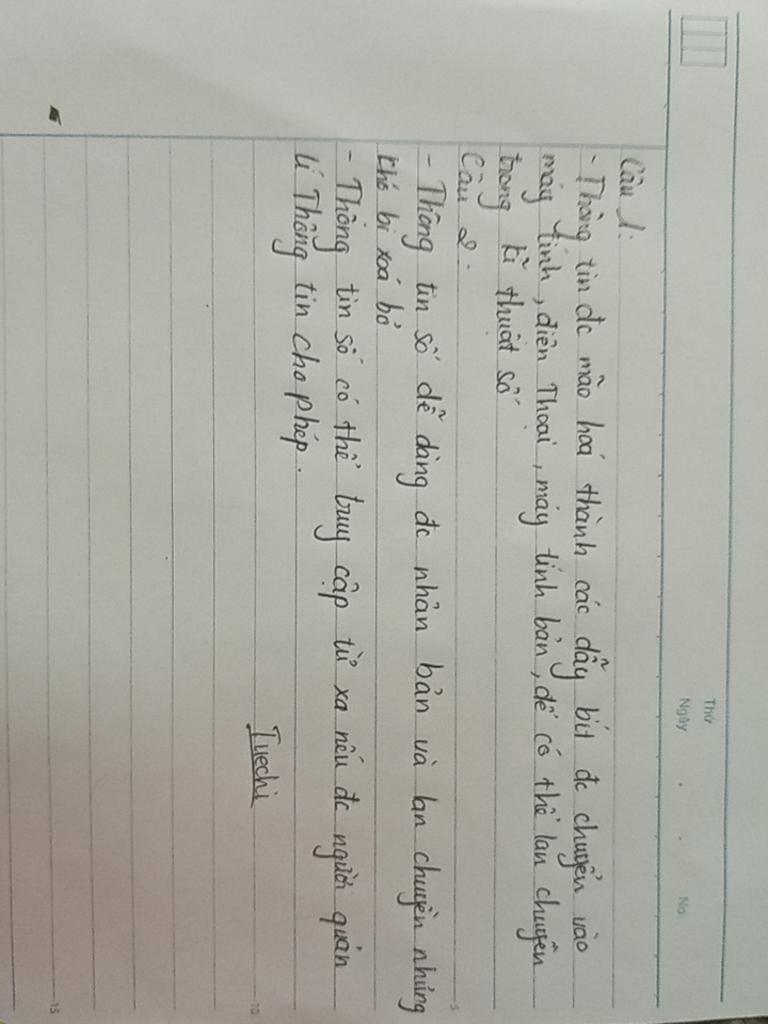 Thứ
Ngày . . No.
Câu 1:
- Thông tin đc mão hoá thành các dẫy bit đc chuyển vào
máy tính, điên Thoại, máy tính bản, để có thể lan chuyên
trong kĩ thuật số
Câu 2:
- Thông tin số dễ dàng đc nhân bản và lan chuyền nhưng
khó bi xoá bỏ
- Thông tin số có thể truy cập từ xa nếu đc người quản
lí Thông tin cho phép.
Tuechi
5
10
15